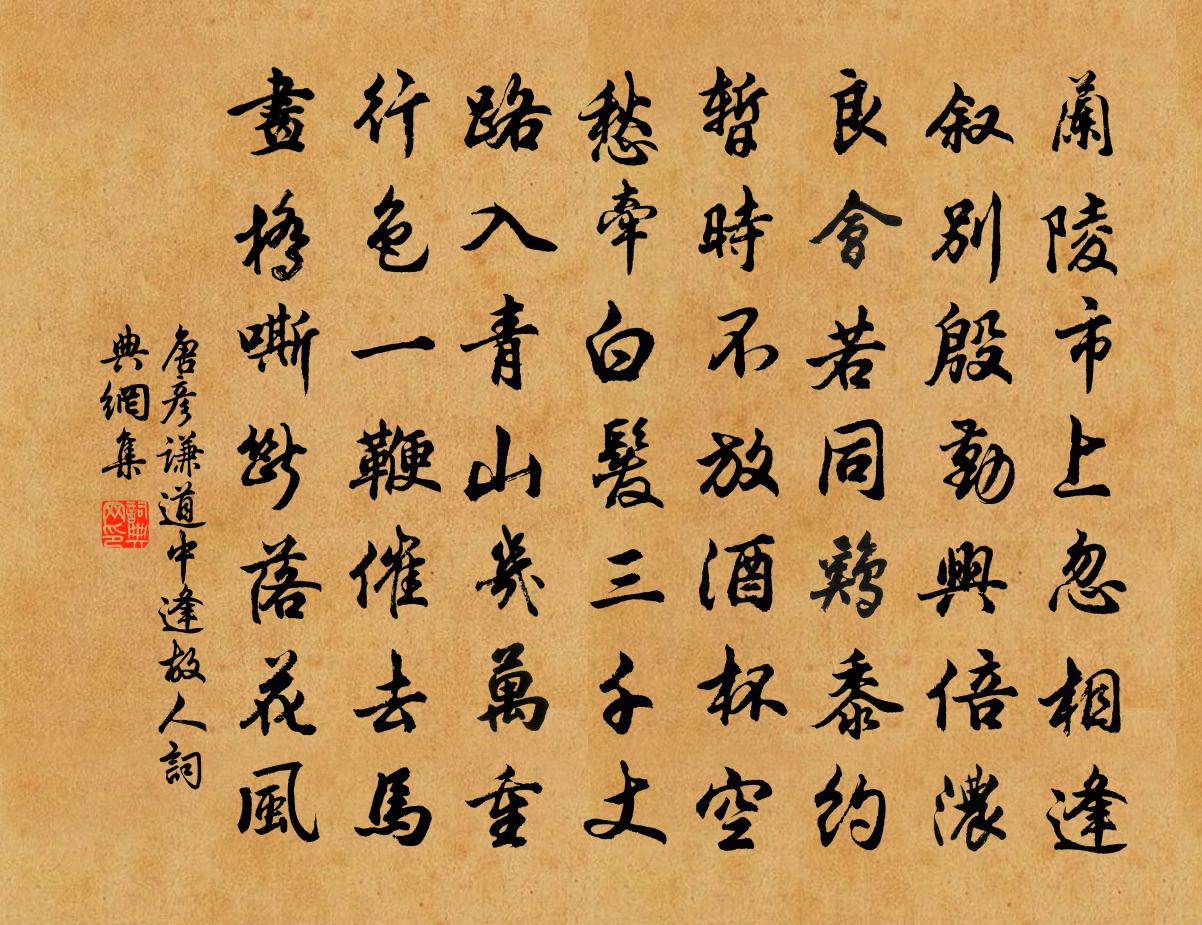 蘭陵市上忽相逢
叙別殷勤興倍濃
良會若同鷄黍約
暫時不放酒杯空
愁牽白髮三千丈
路入青山幾萬重
行色一鞭催去馬
畫橋嘶斷落花風
唐彥謙道中逢故人詞
典網集
詞典
网印